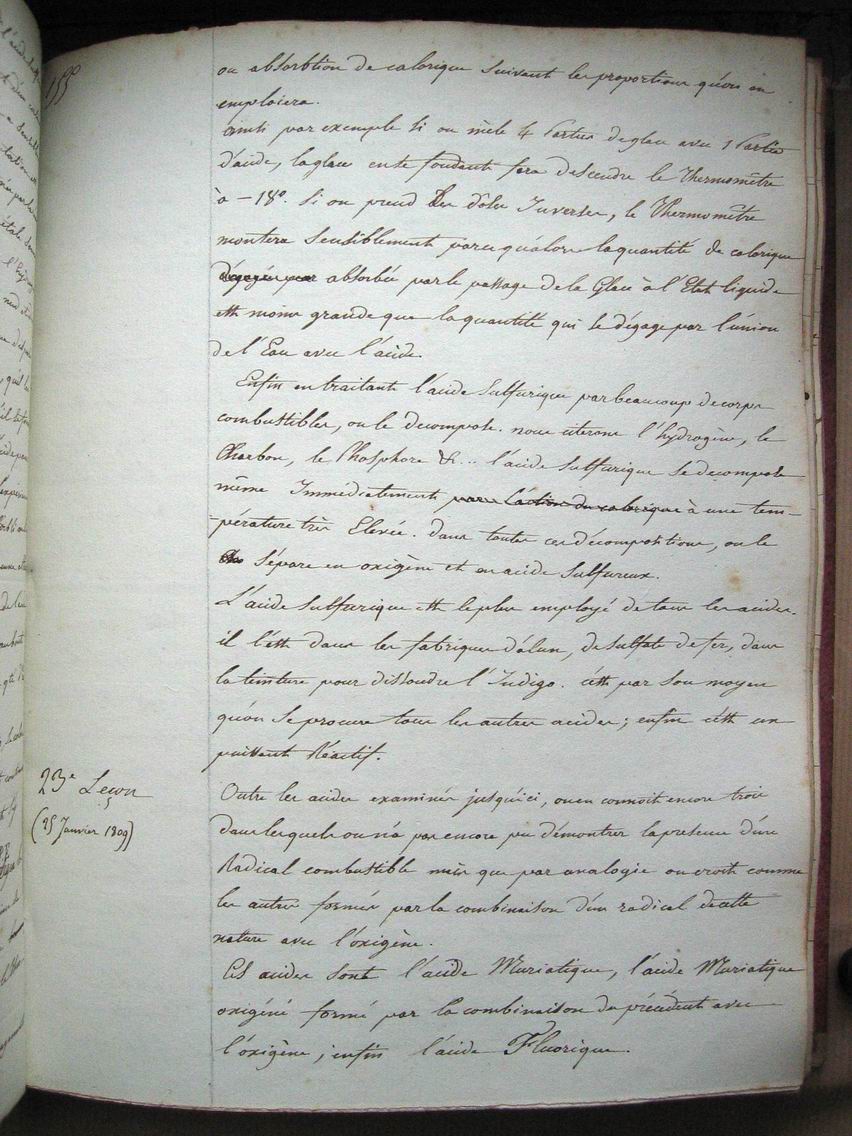 155
ou absorbtion de calorique suivant les proportions qu'on en
emploiera.
ainsi par exemple si on mêle 4 Parties de glace avec 1 Partie
d'acide, la glace en se fondant fera descendre le Thermomètre
à -18°. Si on prend les dôses Inverses, le Thermomètre
montera sensiblement parcequ'alors la quantité de calorique
dégagée par absorbée par le passage de la Glace à l'Etat liquide
est moins grande que la quantité qui se dégage par l'union
de l'Eau avec l'acide.
Enfin en traitant l'acide Sulfurique par beaucoup de corps
combustibles, on le decompose. nous citerons l'hydrogène, le
Charbon, le Phosphore &... l'acide Sulfurique se decompose
même Immédiatement par l'action du calorique à une tem-
-pérature très Elevée. dans toutes ces décompositions, on le
sépare en oxigène et en acide Sulfureux.
L'acide Sulfurique est le plus employé de tous les acides.
il l'est dans les fabriques d'alun, de sulfate de fer, dans
la teinture pour dissoudre l'Indigo. c'est par son moyen
qu'on se procure tous les autres acides; enfin c'est un
puissant Réactif.
23e Leçon
(25 Janvier 1809)
Outre les acides examinés jusqu'ici, on en connoit encore trois
dans lesquels on n'a pas encore pu démontrer la presence d'un
Radical combustible mais que par analogie on croit comme
les autres formés par la combinaison d'un radical de cette
nature avec l'oxigène.
Ces acides sont l'acide Muriatique, l'acide Muriatique
oxigéné formé par la combinaison du précédent avec
l'oxigène; enfin l'acide Fluorique.